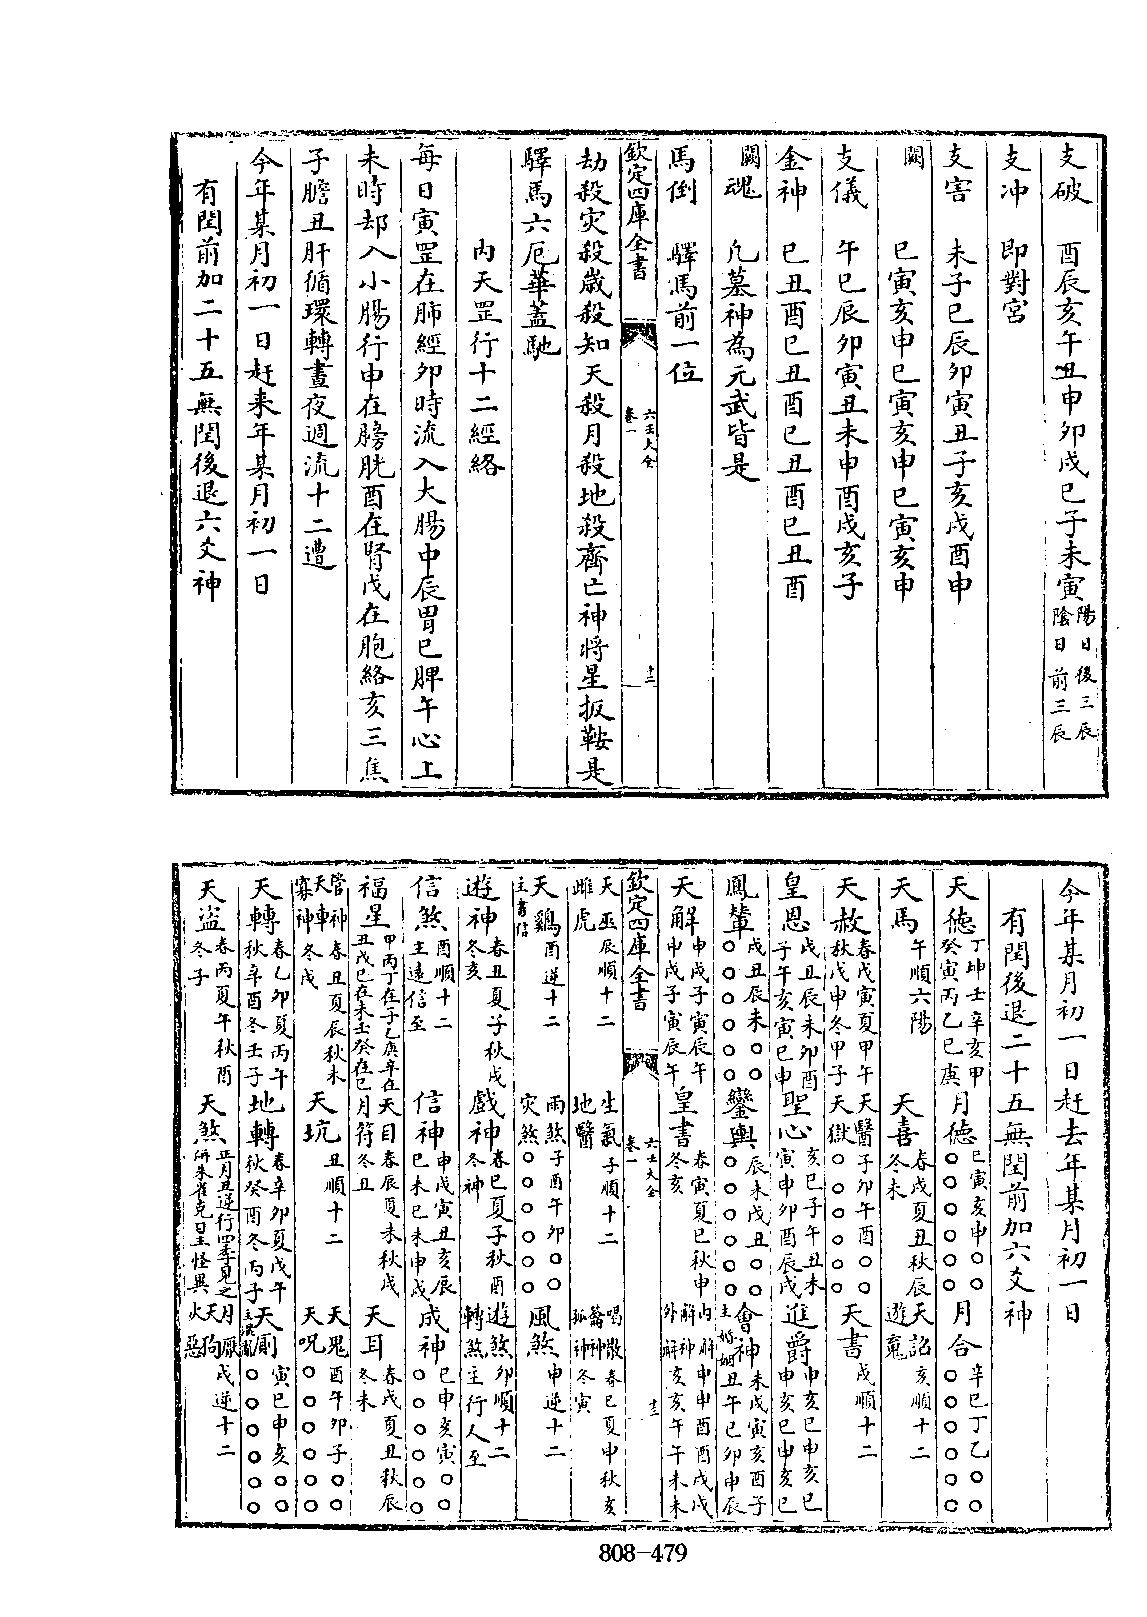 支破　酉辰亥午丑申卯戌巳子未寅陽日後三辰陰日前三辰
支冲　即對宮
支害　未子巳辰卯寅丑子亥戌酉申
闕　巳寅亥申巳寅亥申巳寅亥申
支儀　午巳辰卯寅丑未申酉戌亥子
金神　巳丑酉巳丑酉巳丑酉巳丑酉
闕魂　凡墓神為元武皆是
馬倒　驛馬前一位
欽定四庫全書　六壬大全卷一　十二
劫殺灾殺歲殺知天殺月殺地殺齊亡神將星扳鞍是
驛馬六厄華蓋馳
内天罡行十二經絡
每日寅罡在肺經卯時流入大腸中辰胃巳脾午心上
未時却入小腸行申在膀胱酉在腎戌在胞絡亥三焦
子膽丑肝循環轉晝夜週流十二遭
今年某月初一日赶来年某月初一日
有閏前加二十五無閏後退六爻神
今年某月初一日赶去年某月初一日
有閏後退二十五無閏前加六爻神
天德丁坤壬辛亥甲癸寅丙乙巳庚　月德巳寅亥申○○○○○○○○　月合辛巳丁乙○○○○○○○○
天馬午順六陽　天喜春戌夏丑秋辰冬未　天詔遊鬼亥順十二
天赦春戊寅夏甲午秋戊申冬甲子　天醫天獄子卯午酉○○○○○○○○　天書戌順十二
皇恩戌丑辰未卯酉子午亥寅巳申　聖心亥巳子午丑未寅申卯酉辰戌　進爵申亥巳申亥巳申亥巳申亥巳
鳳輦戌丑辰未○○○○○○○○　鑾輿辰未戌丑○○○○○○○○　會神主婚姻未戌寅亥酉子丑午巳卯申辰
天解申戌子寅辰午申戌子寅辰午　皇書春寅夏巳秋申冬亥　内解神外解申申酉酉戌戌亥亥午午未未
欽定四庫全書　六壬大全卷一　十三
天巫雌虎辰順十二　生氣地醫子順十二　唱散孤神春巳夏申秋亥冬寅
天鷄主書信酉逆十二　雨煞灾煞子酉午卯○○○○○○○○　風煞申逆十二
遊神春丑夏子秋戌冬亥　戲神春巳夏子秋酉冬神　遊煞轉煞卯順十二主行人至
信煞酉順十二主遠信至　信神申戌寅丑亥辰巳未巳未申戌　成神巳申亥寅○○○○○○○○
福星甲丙丁在子乙庚辛在丑戊巳在未壬癸在巳　天目月符春辰夏未秋戌冬丑　天耳春戌夏丑秋辰冬未
管神天車寡神春丑夏辰秋未冬戌　天坑丑順十二　天鬼天呪酉午卯子○○○○○○○○
天轉春乙卯夏丙午秋辛酉冬壬子　地轉春辛卯夏戊午秋癸酉冬丙子　天廁寅巳申亥○○○○○○○○
天盗春丙夏午秋酉冬子　天煞正月丑逆行四季見之併朱雀克日呈怪異　月厭天狗火惡戌逆十二
808-479